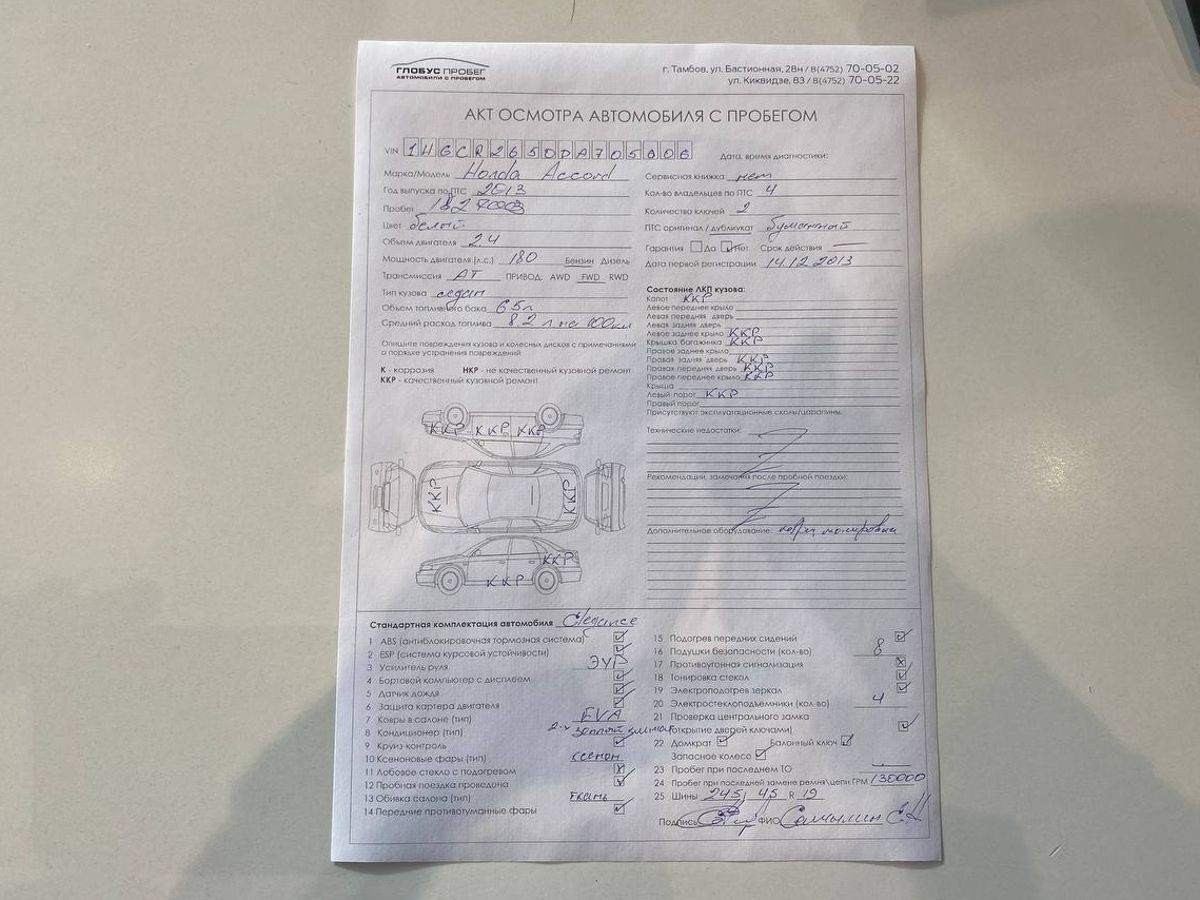 ГЛОБУС ПРОБЕГ
АВТОМОБИЛИ С ПРОБЕГОМ
г. Тамбов, ул. Бастионная, 28н / 8(4752) 70-05-02
ул. Киквидзе, 83 / 8(4752) 70-05-22
АКТ ОСМОТРА АВТОМОБИЛЯ С ПРОБЕГОМ
VIN 1HGCR2650DA705006
Марка/Модель Honda Accord
Год выпуска по ПТС 2013
Пробег
Цвет белый
Объем двигателя 2.4
Мощность двигателя (л.с.) 180 Бензин Дизель
Трансмиссия АТ ПРИВОД: AWD FWD RWD
Тип кузова седан
Объем топливного бака 65л
Средний расход топлива 8.2 л на 100км
Опишите повреждения кузова и колесных дисков с примечаниями
о порядке устранения повреждений
К - коррозия НКР - не качественный кузовной ремонт
ККР - качественный кузовной ремонт
ККР ККР ККР
ККР ККР
ККР
ККР
Дата, время диагностики:
Сервисная книжка нет
Кол-во владельцев по ПТС 4
Количество ключей 2
ПТС оригинал / дубликат бумажный
Гарантия Да Нет Срок действия —
Дата первой регистрации 14.12.2013
Состояние ЛКП кузова:
Капот ККР
Левое переднее крыло
Левая передняя дверь
Левая задняя дверь
Левое заднее крыло ККР
Крышка багажника ККР
Правое заднее крыло
Правая задняя дверь ККР
Правая передняя дверь ККР
Правое переднее крыло ККР
Крыша
Левый порог ККР
Правый порог
Присутствуют эксплуатационные сколы/царапины.
Технические недостатки:
Z
Рекомендации, замечания после пробной поездки:
Z
Дополнительное оборудование:
Стандартная комплектация автомобиля Elegance
1 ABS (антиблокировочная тормозная система)
2 ESP (система курсовой устойчивости)
3 Усилитель руля ЭУР
4 Бортовой компьютер с дисплеем
5 Датчик дождя
6 Защита картера двигателя
7 Ковры в салоне (тип) EVA
8 Кондиционер (тип) 2-х зонный климат
9 Круиз-контроль
10 Ксеноновые фары (тип) ксенон
11 Лобовое стекло с подогревом
12 Пробная поездка проведена
13 Обивка салона (тип) ткань
14 Передние противотуманные фары
15 Подогрев передних сидений
16 Подушки безопасности (кол-во) 8
17 Противоугонная сигнализация
18 Тонировка стекол
19 Электроподогрев зеркал
20 Электростеклоподъемники (кол-во) 4
21 Проверка центрального замка
(открытие дверей ключами)
22 Домкрат Балонный ключ
Запасное колесо
23 Пробег при последнем ТО —
24 Пробег при последней замене ремня\цепи ГРМ 130000
25 Шины 245/ 45 R 19
Подпись ФИО